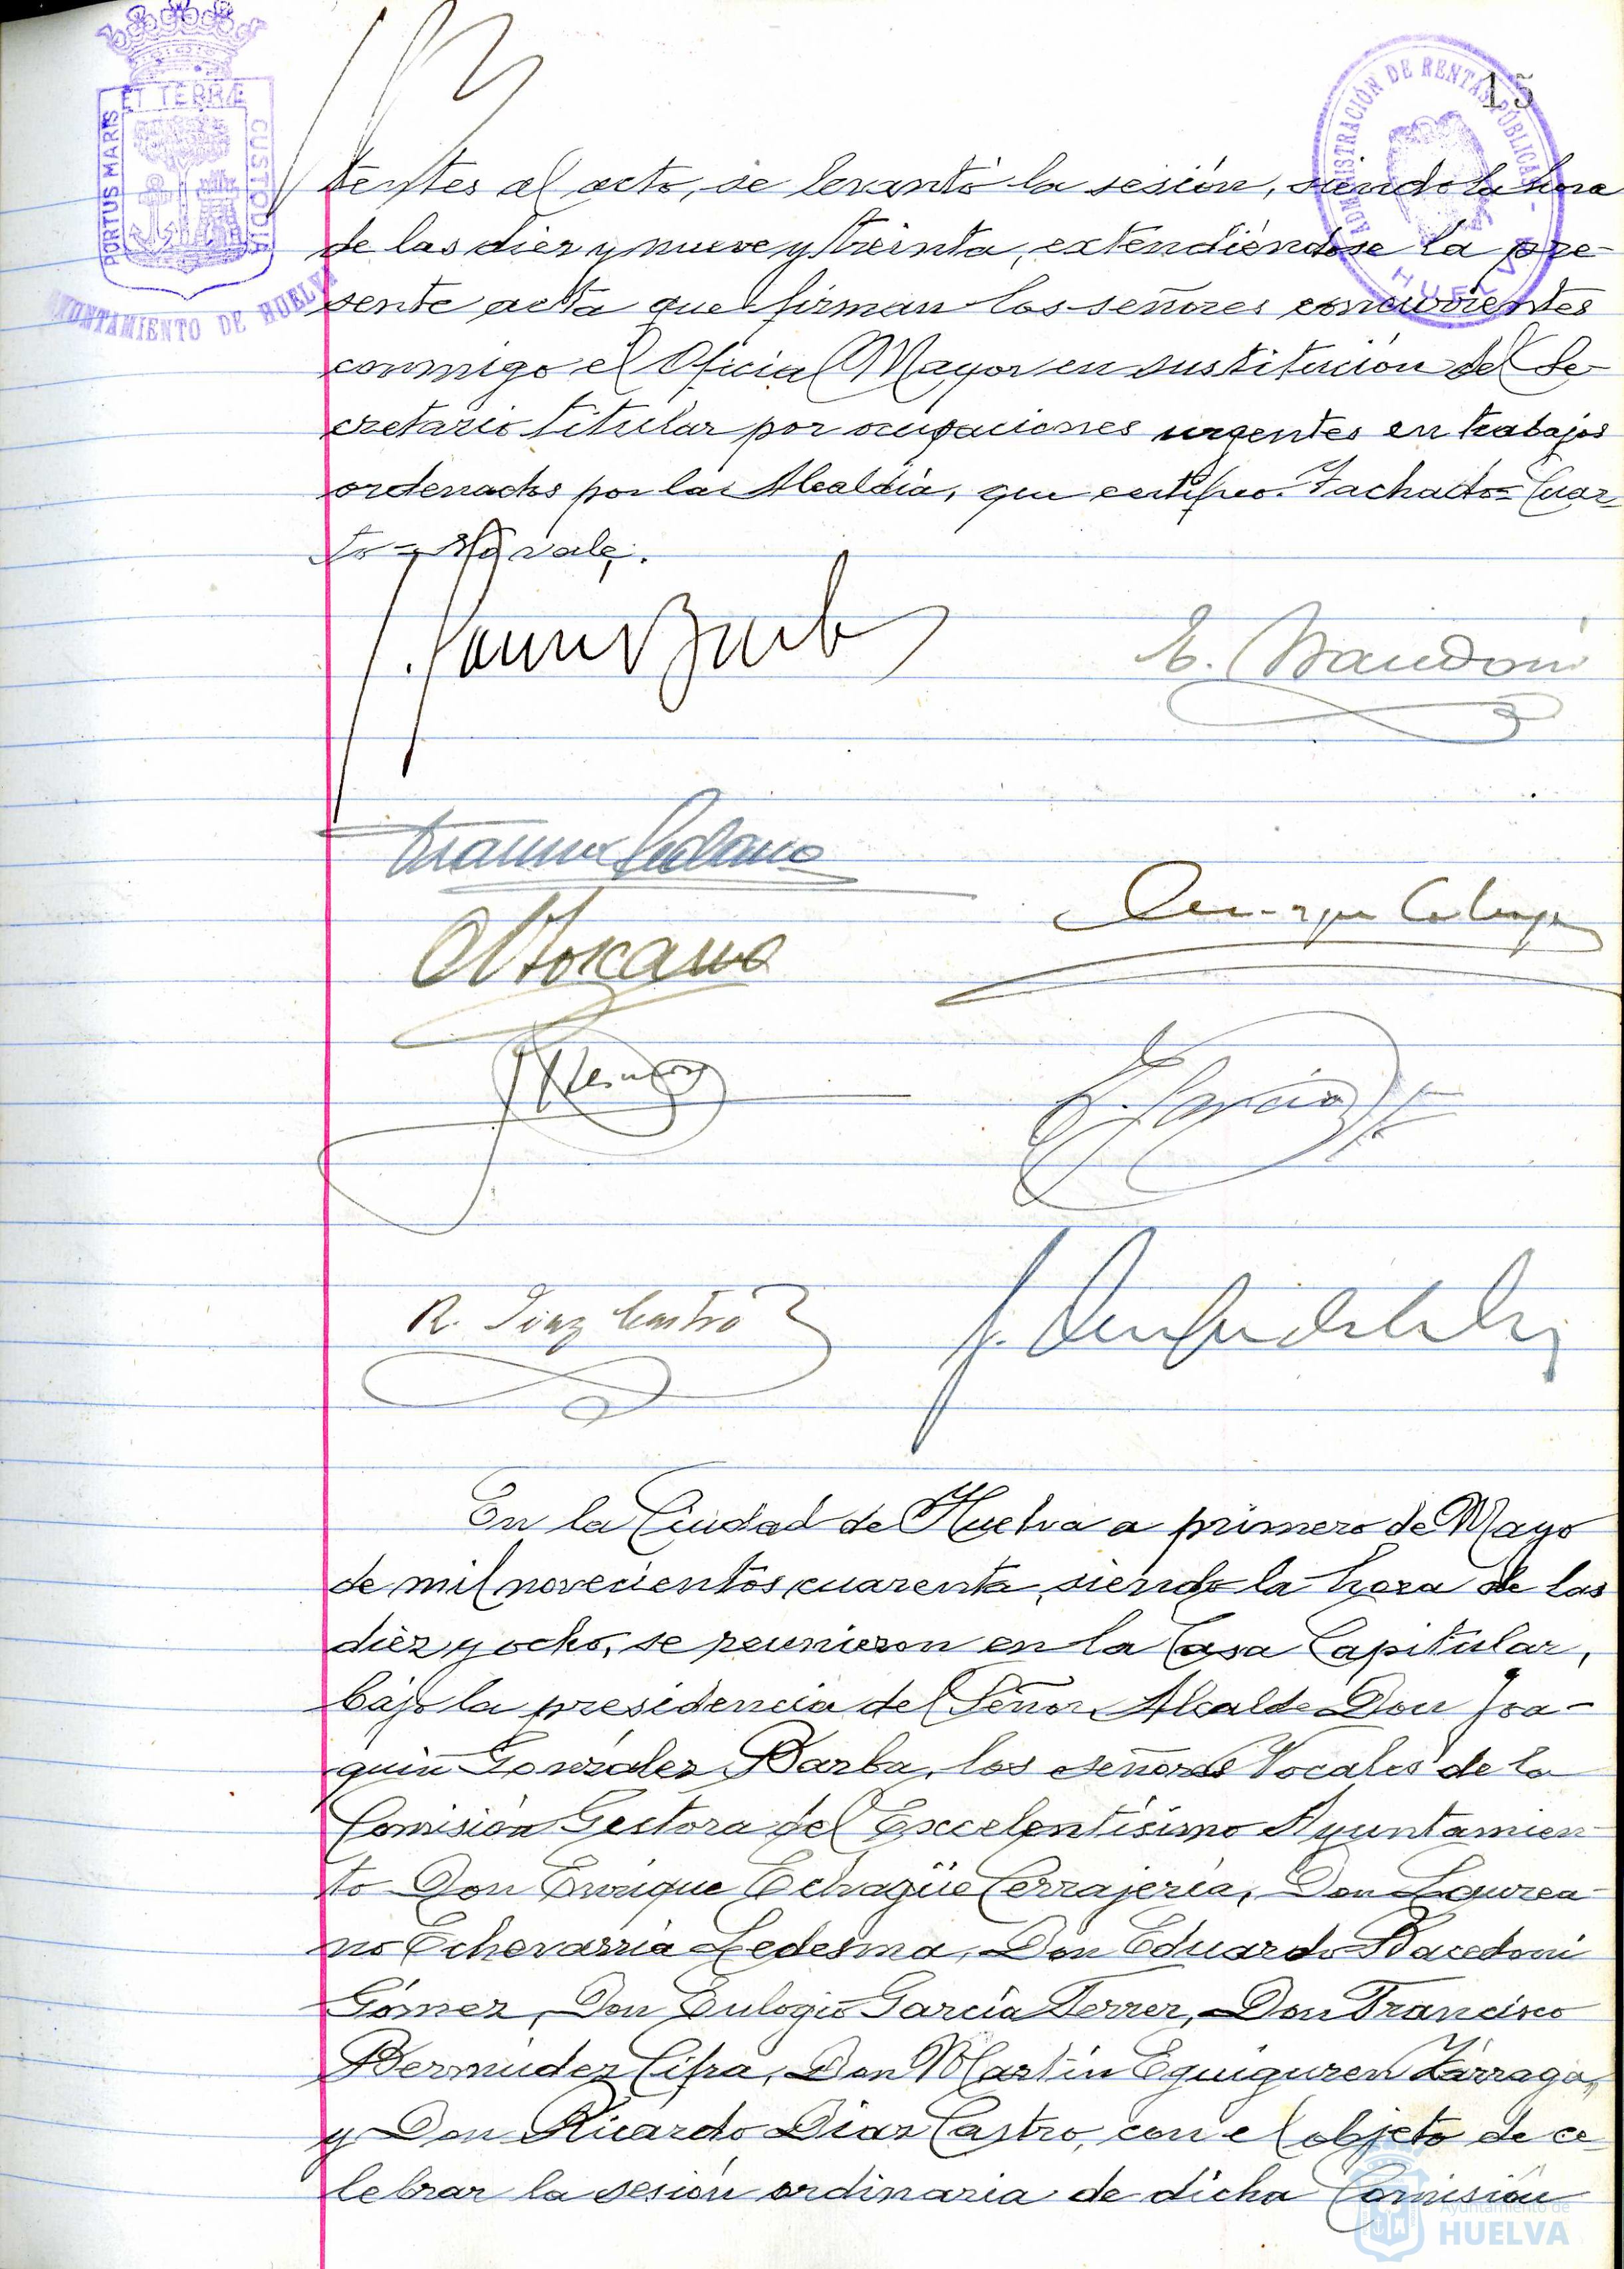 ET TERRÆ
PORTUS MARIS
CUSTODIA
AYUNTAMIENTO DE HUELVA
ADMINISTRACIÓN DE RENTAS PÚBLICAS
HUELVA
15
tentes al acto, se levantó la sesión, siendo la hora
de las diez y nueve y treinta, extendiéndose la pre-
sente acta que firman los señores concurrentes
conmigo el Oficial Mayor en sustitución del Se-
cretario titular por ocupaciones urgentes en trabajos
ordenados por la Alcaldía, que certifico. Tachado= Cuar-
to = No vale.
E. Bacedoni
R. Diaz Castro
E. García
En la Ciudad de Huelva a primero de Mayo
de mil novecientos cuarenta, siendo la hora de las
diez y ocho, se reunieron en la Casa Capitular,
bajo la presidencia del Señor Alcalde Don Joa-
quin González Barba, los señores Vocales de la
Comisión Gestora del Excelentísimo Ayuntamien-
to Don Enrique Echagüe Cerrajería, Don Laurea-
no Echevarría Ledesma, Don Eduardo Bacedoni
Gómez, Don Eulogio García Ferrer, Don Francisco
Bermúdez Cifra, Don Martín Eguiguren Zárraga,
y Don Ricardo Díaz Castro, con el objeto de ce-
lebrar la sesión ordinaria de dicha Comisión
Ayuntamiento de
HUELVA